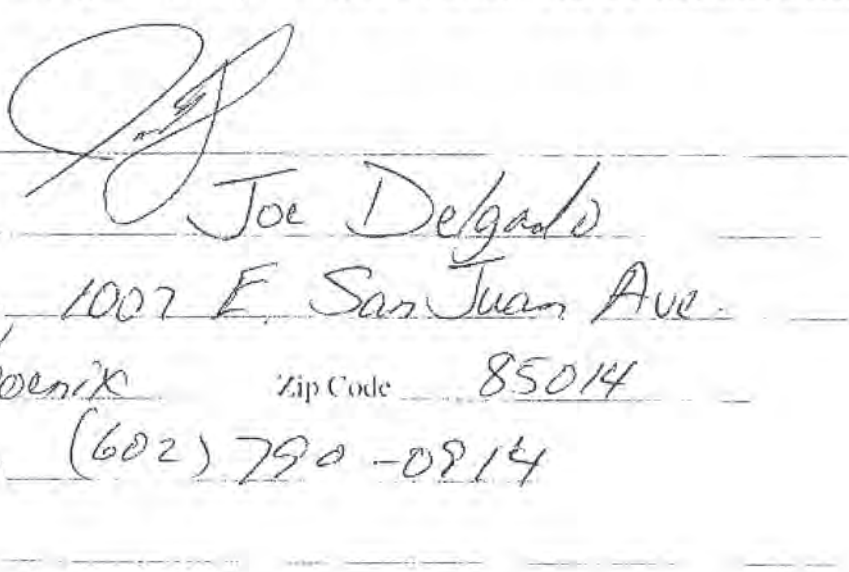 Joe Delgado
1007 E. San Juan Ave.
hoenix Zip Code 85014
(602) 790-0914